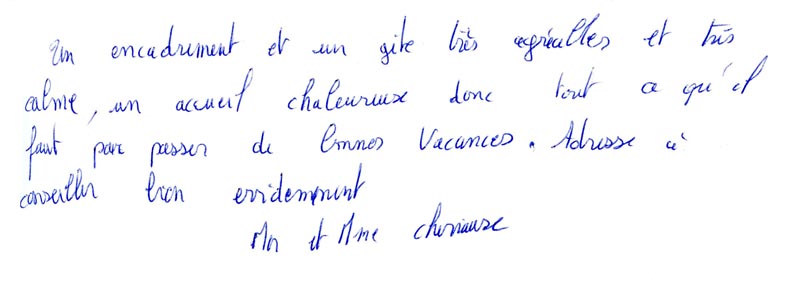 Un encadrement et un gite très agréables et très
calme, un accueil chaleureuse donc tout ce qu'il
faut pour passer de bonnes Vacances. Adresse à
conseiller bien evidemment
Mr et Mme